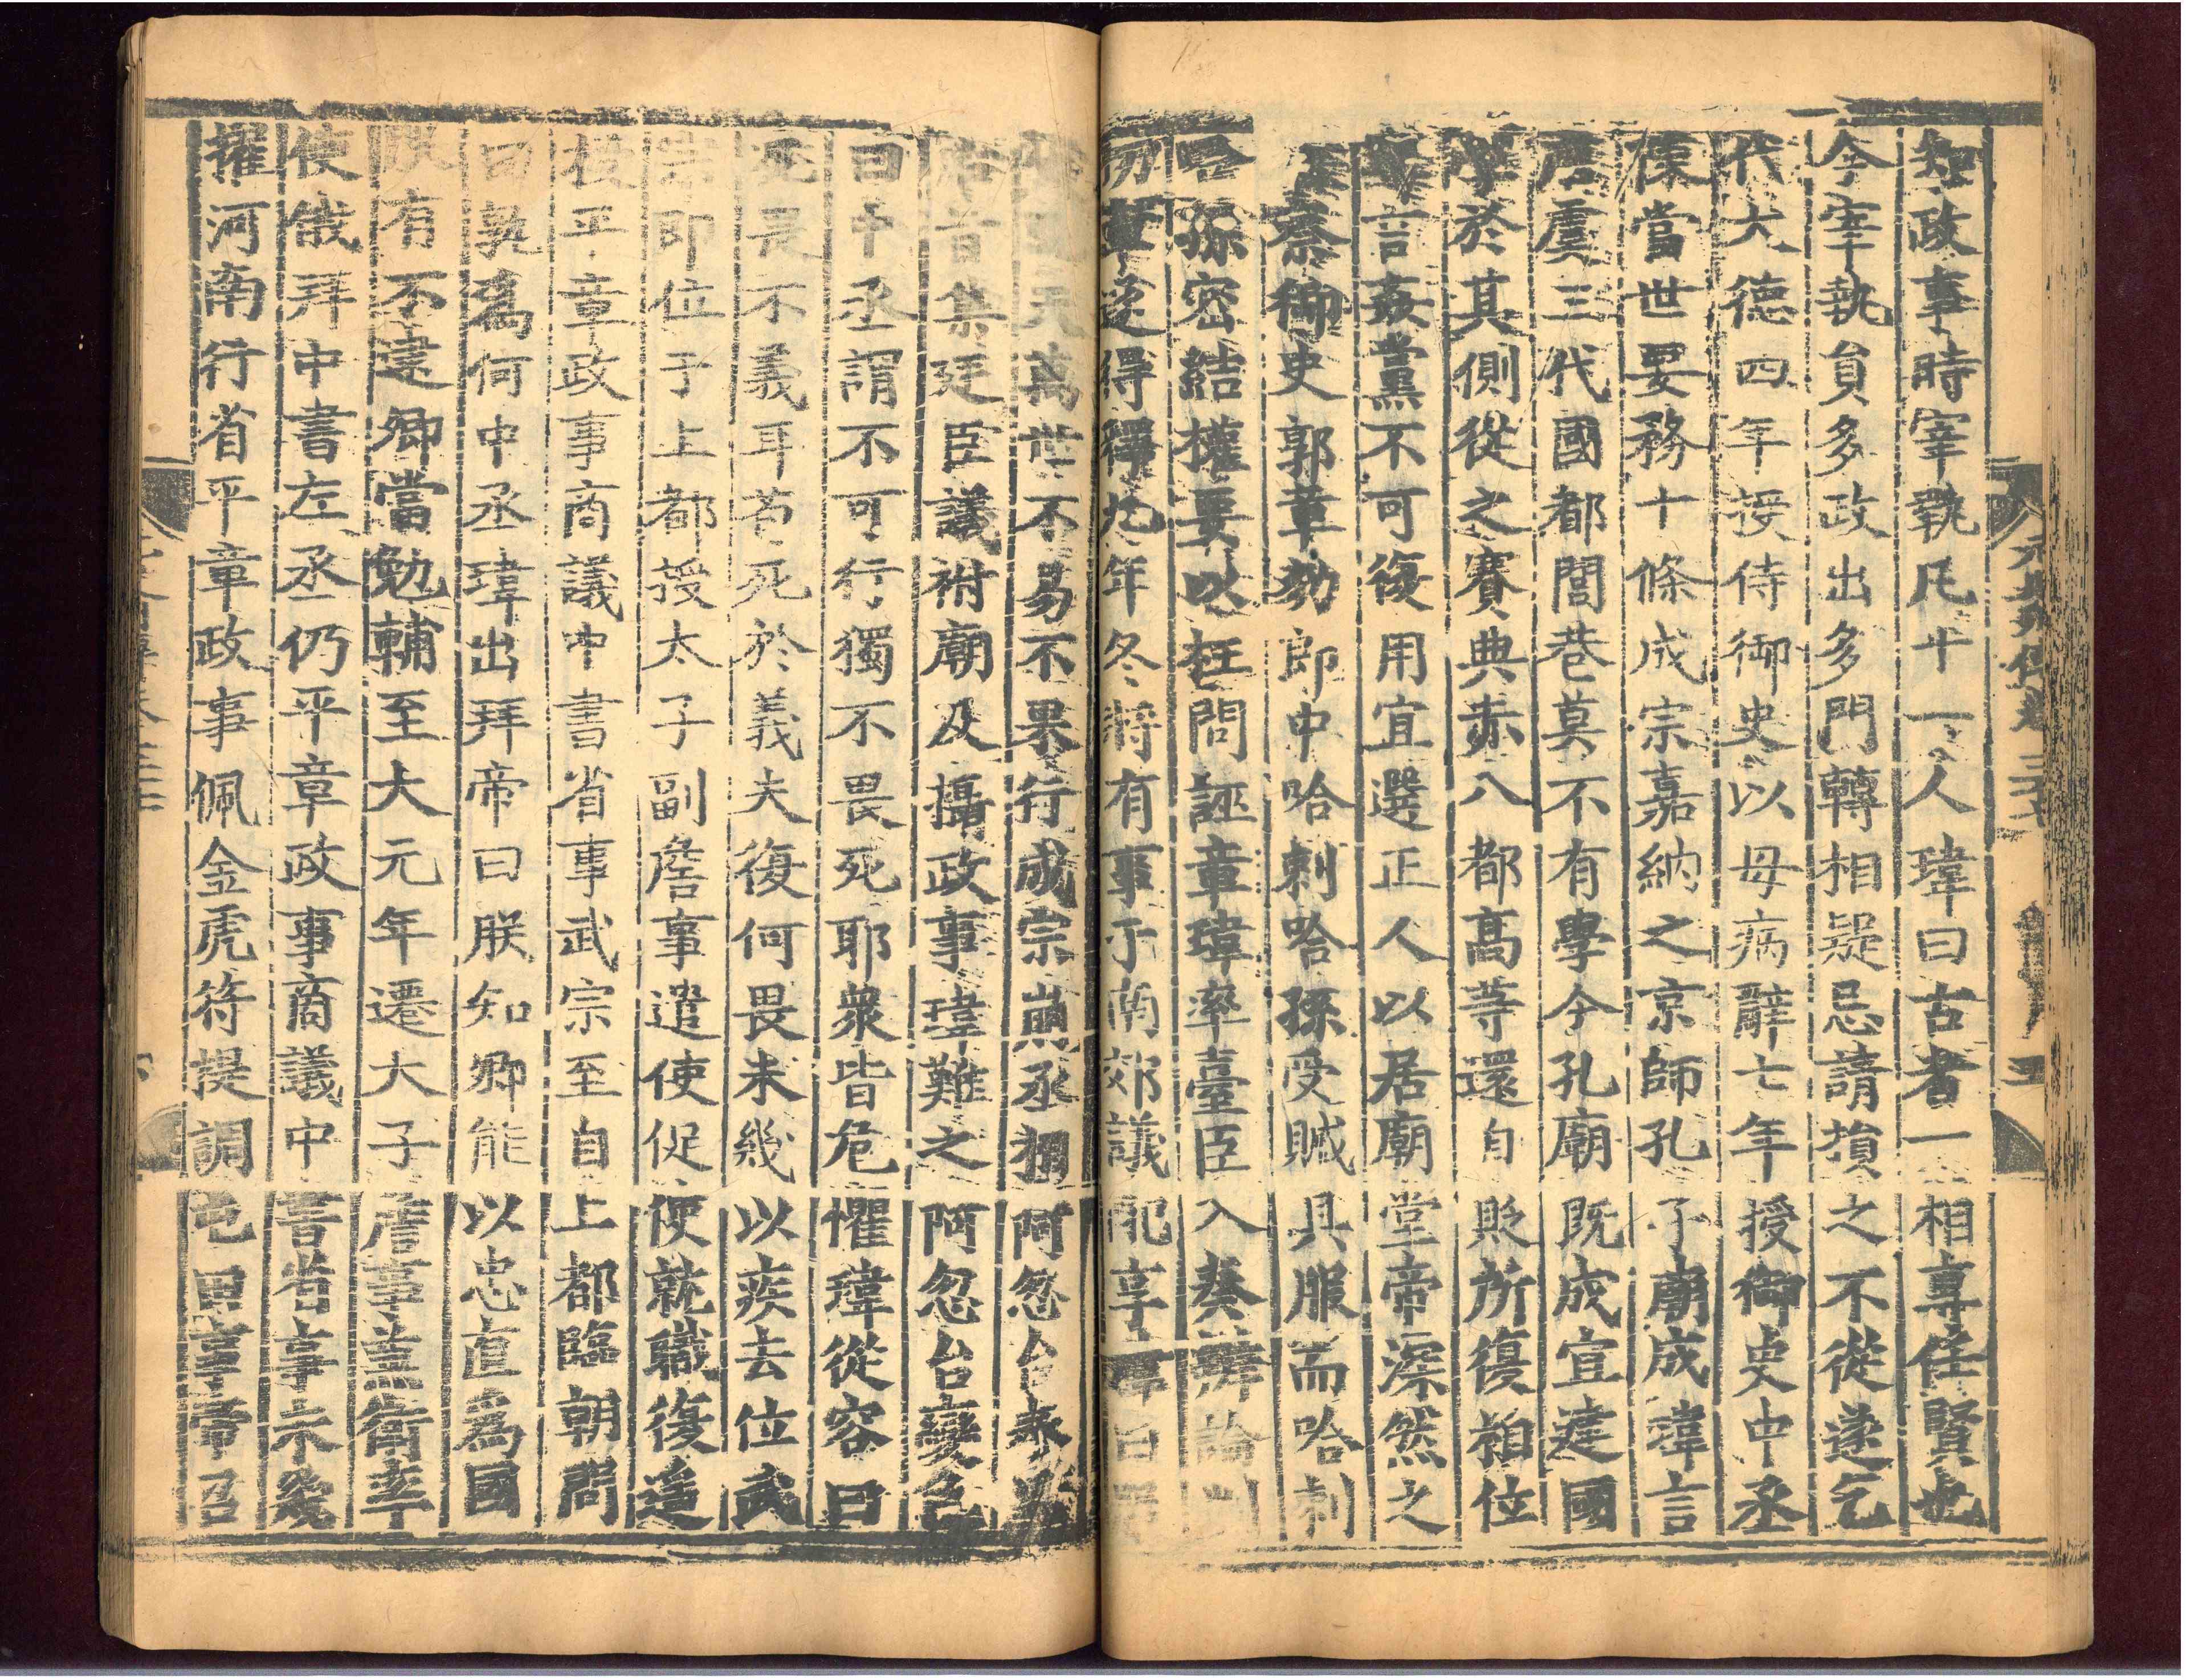 知政事時宰執凡十一人瑋曰古者一相專任賢也
今宰執員多政出多門轉相疑忌請損之不從遂乞
代大德四年授侍御史以母病辭七年授御史中丞
陳當世要務十條成宗嘉納之京師孔子廟成瑋言
唐虞三代國都閭巷莫不有學今孔廟既成宜建國
學於其側從之賽典赤八都高等還自貶所復相位
言姦黨不可復用宜選正人以居廟堂帝深然之
察御史郭章劾郎中哈剌哈孫受贓具服而哈剌
哈孫密結權要以枉問誣章瑋率臺臣入奏辨論剴
切章遂得釋九年冬將有事于南郊議配享瑋曰
萬世不易不果行成宗崩丞相阿忽台奉
首集廷臣議祔廟及攝政事瑋難之阿忽台變色
曰中丞謂不可行獨不畏死耶衆皆危懼瑋從容曰
死畏不義耳苟死於義夫復何畏未幾以疾去位武
宗即位于上都授太子副詹事遣使促使就職復遙
授平章政事商議中書省事武宗至自上都臨朝問
曰孰爲何中丞瑋出拜帝曰朕知卿能以忠直爲國
既有不逮卿當勉輔至大元年遷太子詹事兼衛率
使俄拜中書左丞仍平章政事商議中書省事未幾
擢河南行省平章政事佩金虎符提調屯田事帝召